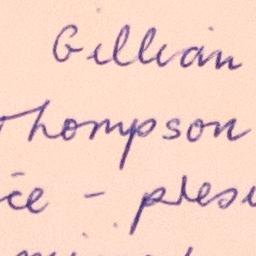 Gillian
Thompson
ice - presi